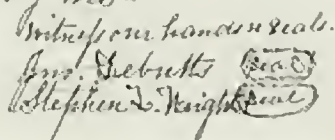 Witness our hands & seals.
Jno. Tebutts Seal
Stephen L. Wright Seal